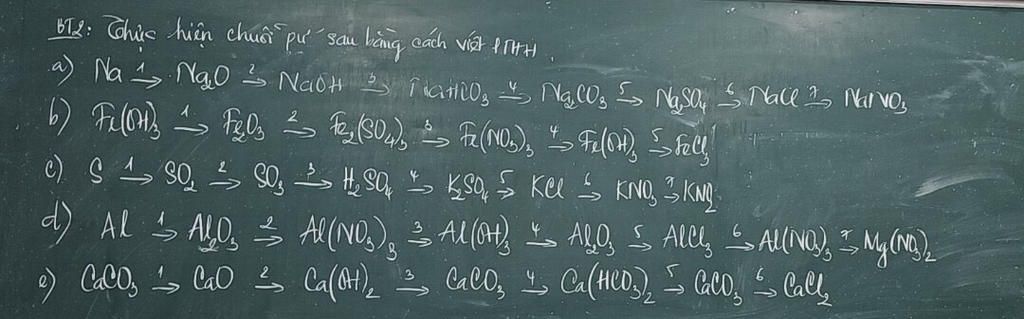 BT2: Thực hiện chuỗi pư sau bằng cách viết PTHH.
a) Na 1→ Na2O 2→ NaOH 3→ NaHCO3 4→ Na2CO3 5→ Na2SO4 6→ NaCl 7→ NaNO3
b) Fe(OH)3 1→ Fe2O3 2→ Fe2(SO4)3 3→ Fe(NO3)3 4→ Fe(OH)3 5→ FeCl3
c) S 1→ SO2 2→ SO3 3→ H2SO4 4→ K2SO4 5→ KCl 6→ KNO3 7→ KNO2
d) Al 1→ Al2O3 2→ Al(NO3)3 3→ Al(OH)3 4→ Al2O3 5→ AlCl3 6→ Al(NO3)3 7→ Mg(NO3)2
e) CaCO3 1→ CaO 2→ Ca(OH)2 3→ CaCO3 4→ Ca(HCO3)2 5→ CaCO3 6→ CaCl2